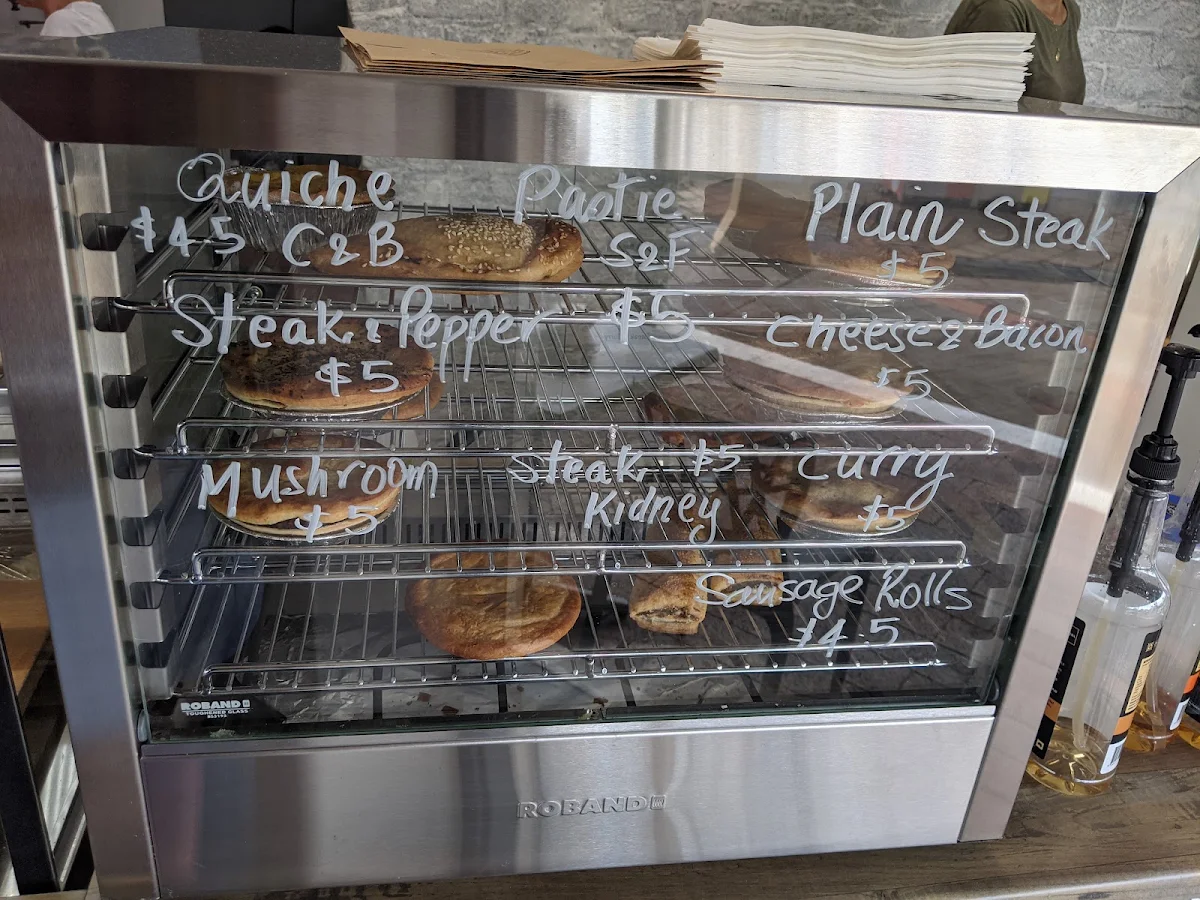 Quiche
$4.5 C&B
Pastie
S&F
$5
Plain Steak
$5
Steak & Pepper
$5
Cheese & Bacon
$5
Mushroom
$5
Steak $5
Kidney
Curry
$5
Sausage Rolls
$4.5
ROBAND
TOUGHENED GLASS
ROBAND